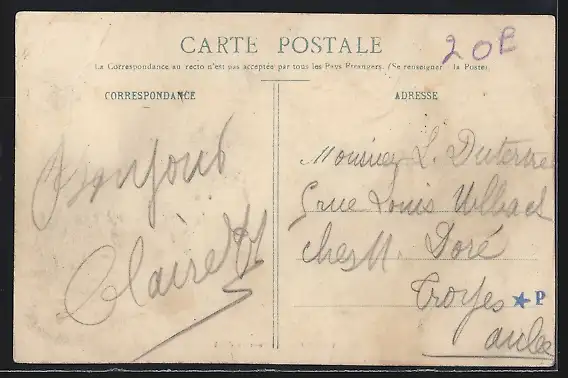 CARTE POSTALE
20E
La Correspondance au recto n'est pas acceptée par tous les Pays Étrangers. (Se renseigner la Poste)
CORRESPONDANCE
Bonjour
Claire
ADRESSE
Monsieur L. Dutertre
rue Louis Ulbach
chez M. Doré
Troyes
P
aube